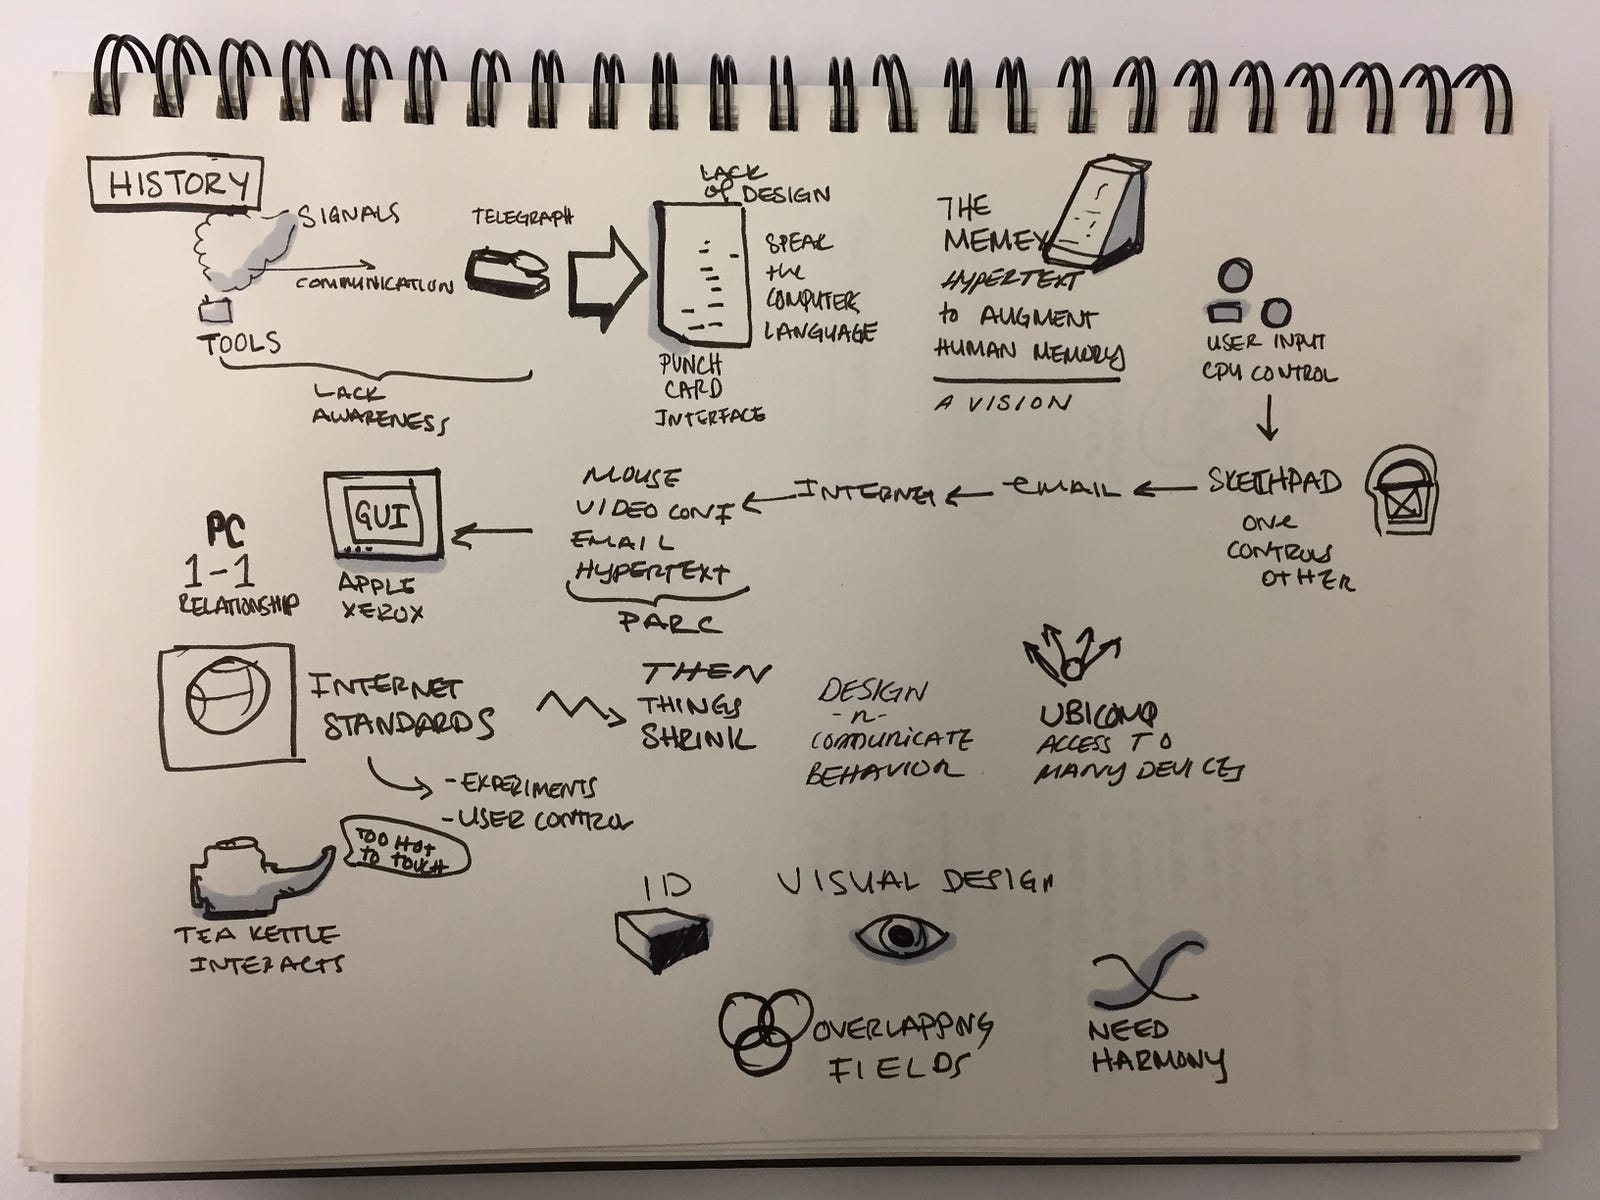 HISTORY
SIGNALS
COMMUNICATION
TOOLS
TELEGRAPH
LACK
AWARENESS
LACK
of DESIGN
SPEAK
the
COMPUTER
LANGUAGE
PUNCH
CARD
INTERFACE
THE
MEMEX
HYPERTEXT
to AUGMENT
HUMAN MEMORY
A VISION
USER INPUT
CPU CONTROL
SKETCHPAD
ONE
CONTROLS
OTHER
EMAIL
INTERNET
MOUSE
VIDEO CONF
EMAIL
HYPERTEXT
PARC
GUI
APPLE
XEROX
PC
1-1
RELATIONSHIP
INTERNET
STANDARDS
- EXPERIMENTS
- USER CONTROL
THEN
THINGS
SHRINK
DESIGN
-n-
COMMUNICATE
BEHAVIOR
UBICOMP
ACCESS TO
MANY DEVICES
TOO HOT
TO TOUCH
TEA KETTLE
INTERACTS
ID
VISUAL DESIGN
OVERLAPPING
FIELDS
NEED
HARMONY